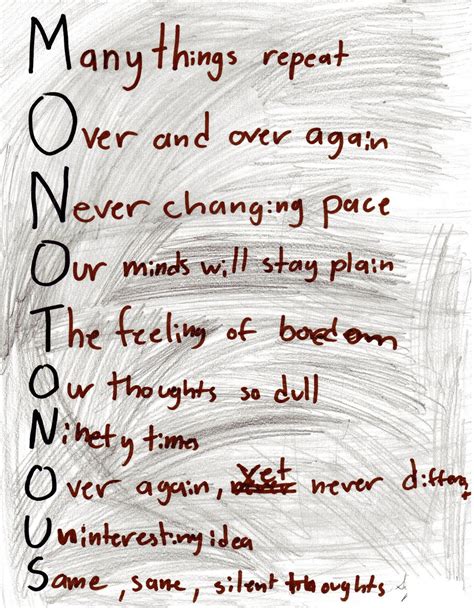 Many things repeat
Over and over again
Never changing pace
Our minds will stay plain
The feeling of boredom
Our thoughts so dull
Ninety times
Over again, yet never different
Uninteresting idea
Same, same, silent thoughts